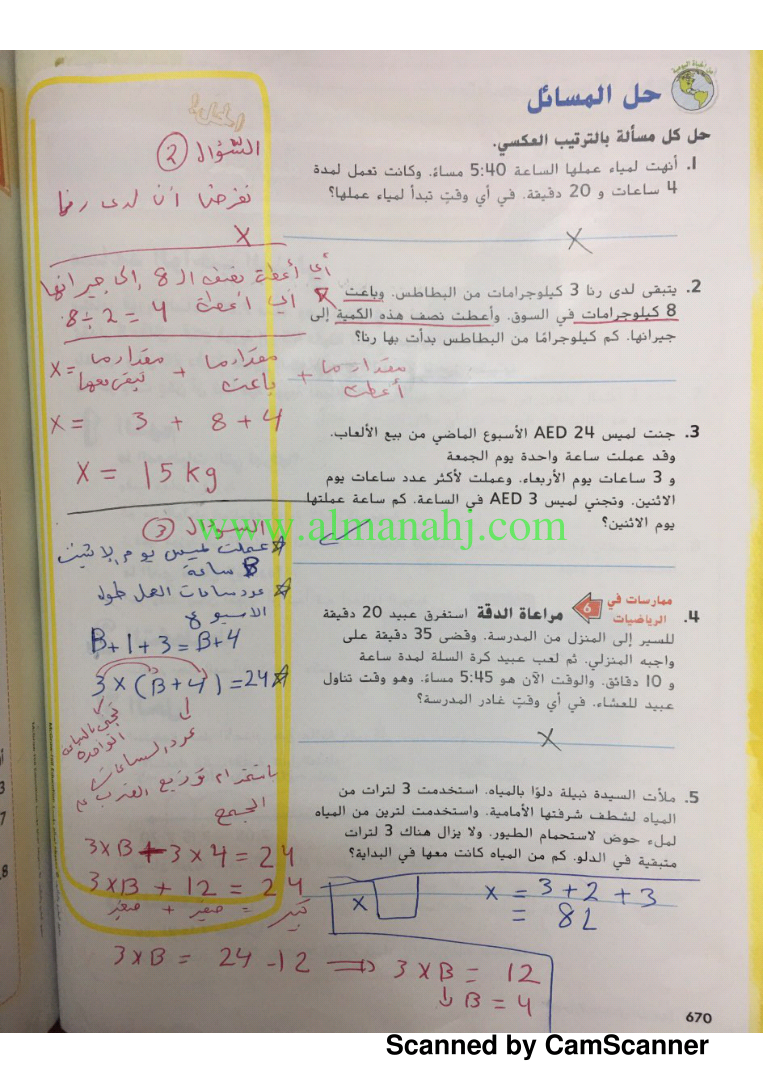 حل المسائل
حل كل مسألة بالترتيب العكسي.
1. أنهت لمياء عملها الساعة 5:40 مساءً. وكانت تعمل لمدة
4 ساعات و 20 دقيقة. في أي وقتٍ تبدأ لمياء عملها؟
X
2. يتبقى لدى رنا 3 كيلوجرامات من البطاطس. وباعت
8 كيلوجرامات في السوق. وأعطت نصف هذه الكمية إلى
جيرانها. كم كيلوجرامًا من البطاطس بدأت بها رنا؟
3. جنت لميس AED 24 الأسبوع الماضي من بيع الألعاب.
وقد عملت ساعة واحدة يوم الجمعة
و 3 ساعات يوم الأربعاء. وعملت لأكثر عدد ساعات يوم
الاثنين. وتجني لميس AED 3 في الساعة. كم ساعة عملتها
يوم الاثنين؟
www.almanahj.com
ممارسات في
الرياضيات
6
4. مراعاة الدقة استغرق عبيد 20 دقيقة
للسير إلى المنزل من المدرسة. وقضى 35 دقيقة على
واجبه المنزلي. ثم لعب عبيد كرة السلة لمدة ساعة
و 10 دقائق. والوقت الآن هو 5:45 مساءً. وهو وقت تناول
عبيد للعشاء. في أي وقت غادر المدرسة؟
X
5. ملأت السيدة نبيلة دلوًا بالمياه. استخدمت 3 لترات من
المياه لشطف شرفتها الأمامية. واستخدمت لترين من المياه
لملء حوض لاستحمام الطيور. ولا يزال هناك 3 لترات
متبقية في الدلو. كم من المياه كانت معها في البداية؟
x
x = 3 + 2 + 3
= 8L
670
الحل:
السؤال 2
نفرض أن لدى رنا
X
أي أعطت نصف الـ 8 إلى جيرانها
أي أعطت 8 ÷ 2 = 4
X = مقدار ما تبقى معها + مقدار ما باعت + مقدار ما أعطت
X = 3 + 8 + 4
X = 15 kg
السؤال 3
عملت لميس يوم الإثنين
B ساعة
عدد ساعات العمل طول
الأسبوع
B+1+3 = B+4
3 x (B+4) = 24
تجني بالساعة الواحدة
عدد الساعات
باستخدام توزيع الضرب على
الجمع
3xB + 3 x 4 = 24
3xB + 12 = 24
صغير + صغير = كبير
3 x B = 24 - 12 ⟹ 3 x B = 12
B = 4
Scanned by CamScanner